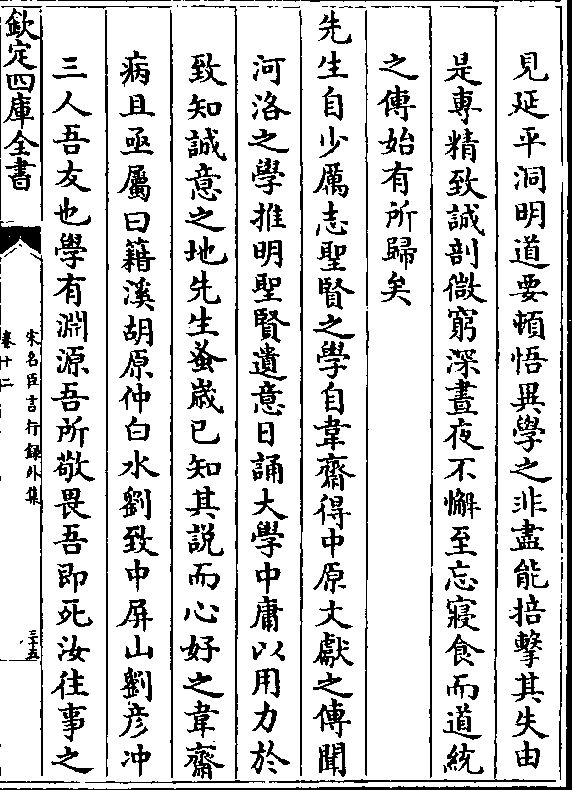 見延平洞明道要頓悟異學之非盡能掊擊其失由
是専精致誠剖微窮深晝夜不懈至忘寢食而道統
之傳始有所歸矣
先生自少厲志聖賢之學自韋齋得中原文獻之傳聞
河洛之學推明聖賢遺意日誦大學中庸以用力於
致知誠意之地先生蚤歲已知其説而心好之韋齋
病且亟屬曰籍溪胡原仲白水劉致中屏山劉彦冲
三人吾友也學有淵源吾所敬畏吾即死汝往事之
欽定四庫全書
宋名臣言行録外集
卷十二
三十五